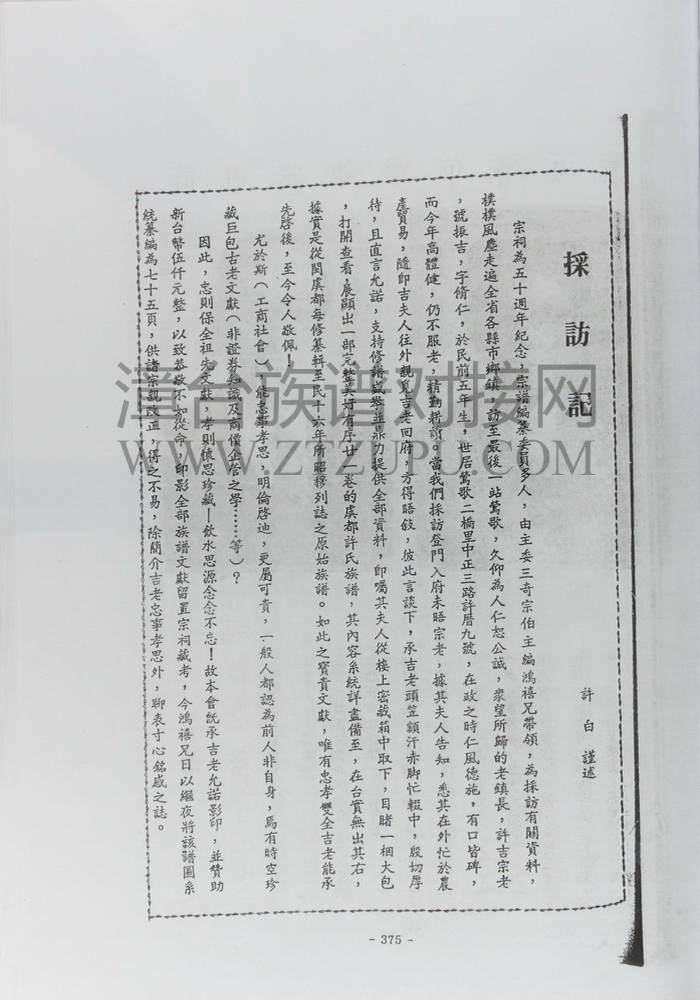 採訪記
許白 謹述
宗祠為五十週年紀念，宗譜編纂委員多人，由主委三奇宗伯主編鴻禧兄帶領，為採訪有關資料，
樸樸風塵走遍全省各縣市鄉鎮，訪至最後一站鶯歌，久仰為人仁恕公誠，衆望所歸的老鎮長，許吉宗老
，號振吉，字脩仁，於民前五年生，世居鶯歌二橋里中正三路許厝九號，在政之時仁風德施，有口皆碑，
而今年高體健，仍不服老，精勤耕讀。當我們採訪登門入府未晤宗老，據其夫人告知，悉其在外忙於農
產貿易，隨即吉夫人往外親覓吉老回府，方得晤敘，彼此言談下，承吉老頭笠額汗赤脚忙輟中，殷切厚
待，且直言允諾，支持修譜盛舉並鼎力提供全部資料，即囑其夫人從樓上密藏箱中取下，目睹一梱大包
，打開查看，展顯出一部完整美好有序廿一卷的虞都許氏族譜，其內容系統詳盡備至，在台實無出其右，
據實是從閩虞都每修纂輯至民十六年所昭穆列誌之原始族譜。如此之寶貴文獻，唯有忠孝雙全吉老能承
先啓後，至今令人敬佩！
尤於斯（工商社會），能忠事孝思，明倫啓迪，更屬可貴，一般人都認為前人非自身，焉有時空珍
藏巨包古老文獻（非證券知識及商價企管之學……等）？
因此，忠則保全祖先文獻，孝則懷思珍藏—飲水思源念念不忘！故本會旣承吉老允諾影印，並贊助
新台幣伍仟元整，以致恭敬不如從命，印影全部族譜文獻留置宗祠藏考，今鴻禧兄日以繼夜將該譜圖系
統纂編為七十五頁，供諸宗親改正，得之不易，除簡介吉老忠事孝思外，聊表寸心銘感之誌。
漳台族谱对接网
WWW.ZTZUPU.COM
- 375 -